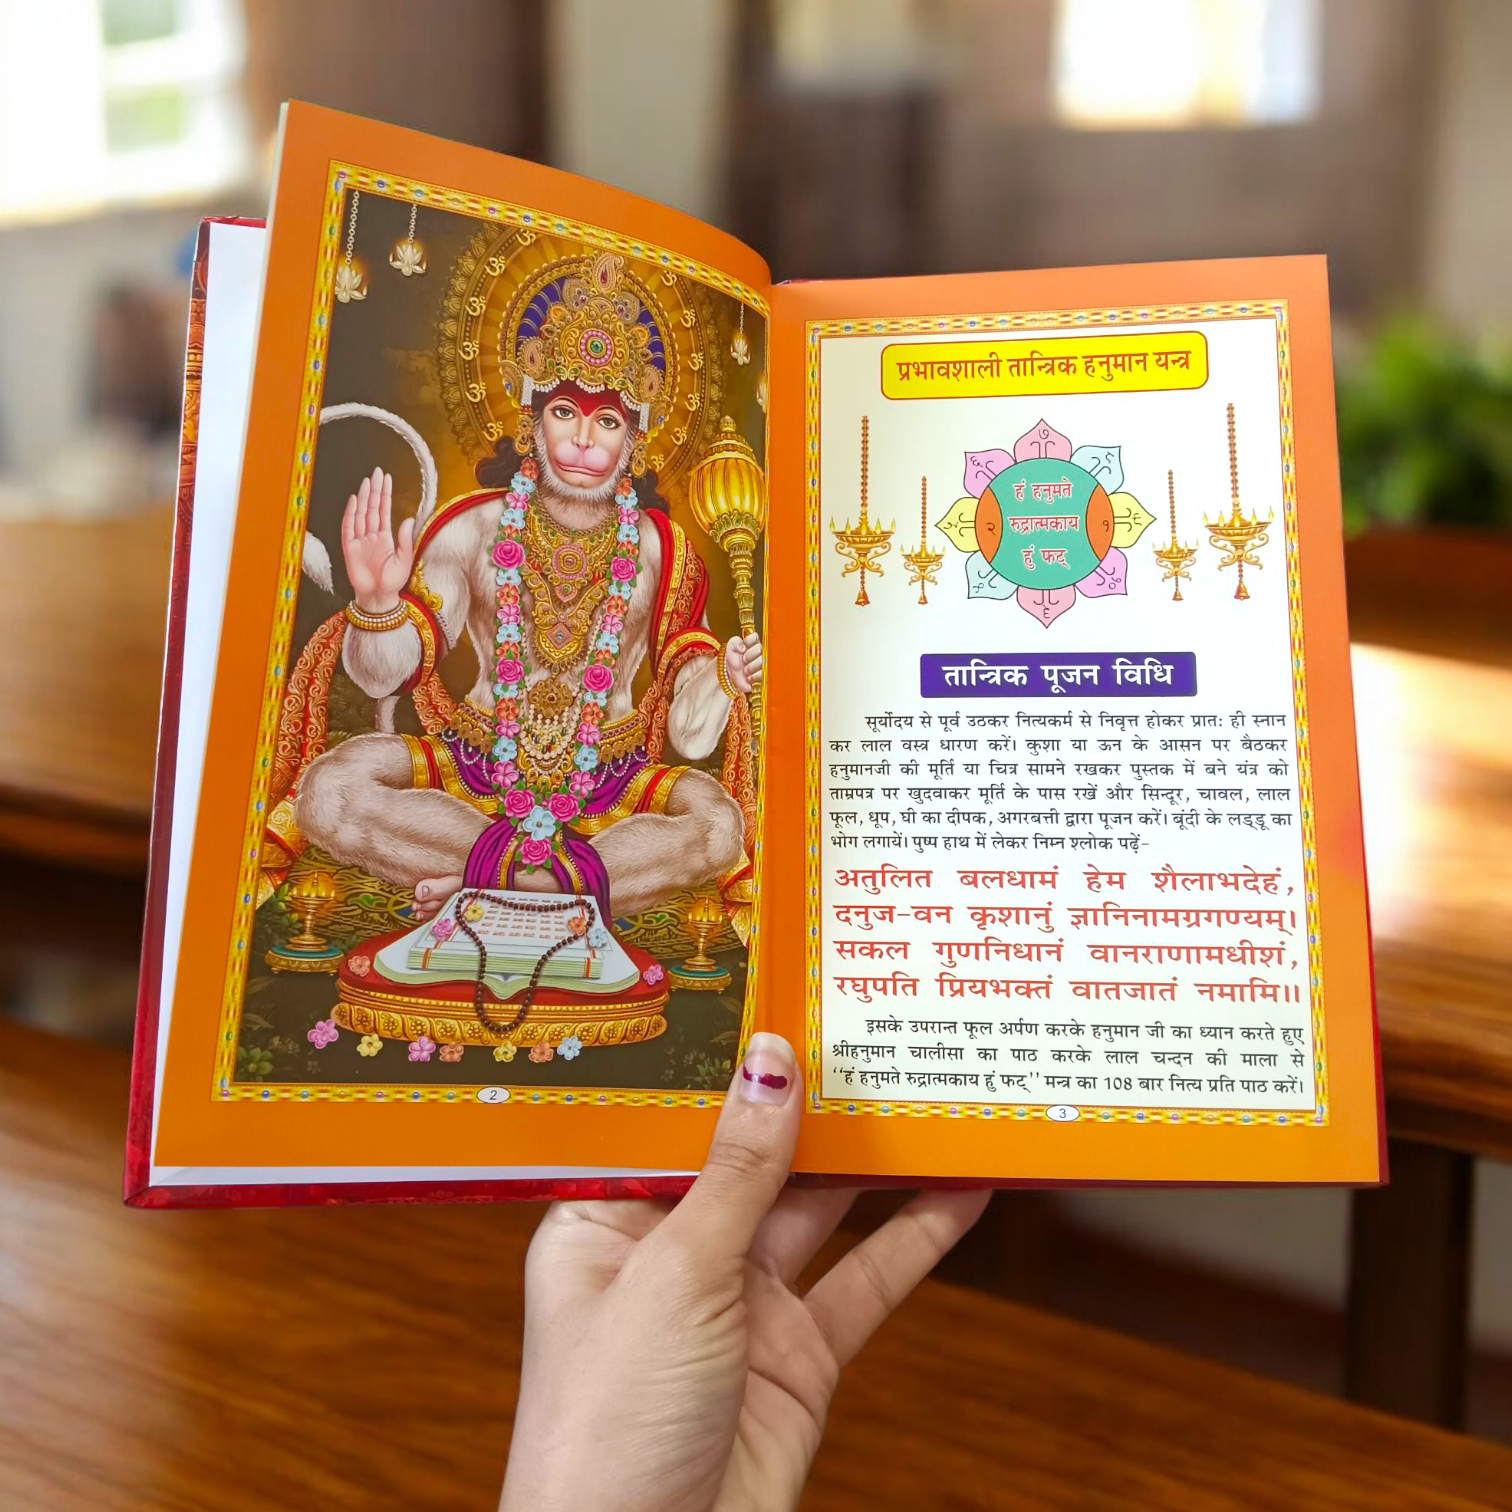 2
प्रभावशाली तान्त्रिक हनुमान यन्त्र
७
हं हनुमते
२ रुद्रात्मकाय १
हुं फट्
तान्त्रिक पूजन विधि
सूर्योदय से पूर्व उठकर नित्यकर्म से निवृत्त होकर प्रातः ही स्नान
कर लाल वस्त्र धारण करें। कुशा या ऊन के आसन पर बैठकर
हनुमानजी की मूर्ति या चित्र सामने रखकर पुस्तक में बने यंत्र को
ताम्रपत्र पर खुदवाकर मूर्ति के पास रखें और सिन्दूर, चावल, लाल
फूल, धूप, घी का दीपक, अगरबत्ती द्वारा पूजन करें। बूंदी के लड्डू का
भोग लगायें। पुष्प हाथ में लेकर निम्न श्लोक पढ़ें-
अतुलित बलधामं हेम शैलाभदेहं,
दनुज-वन कृशानुं ज्ञानिनामग्रगण्यम्।
सकल गुणनिधानं वानराणामधीशं,
रघुपति प्रियभक्तं वातजातं नमामि।।
इसके उपरान्त फूल अर्पण करके हनुमान जी का ध्यान करते हुए
श्रीहनुमान चालीसा का पाठ करके लाल चन्दन की माला से
‘‘हं हनुमते रुद्रात्मकाय हुं फट्’’ मन्त्र का 108 बार नित्य प्रति पाठ करें।
3